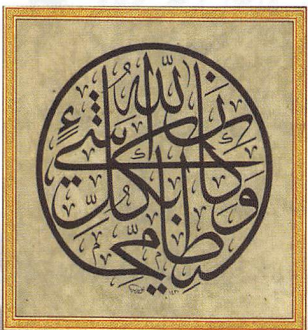 وَكَانَ اللهُ بِكُلِّ شَيْءٍ مُحِيطًا